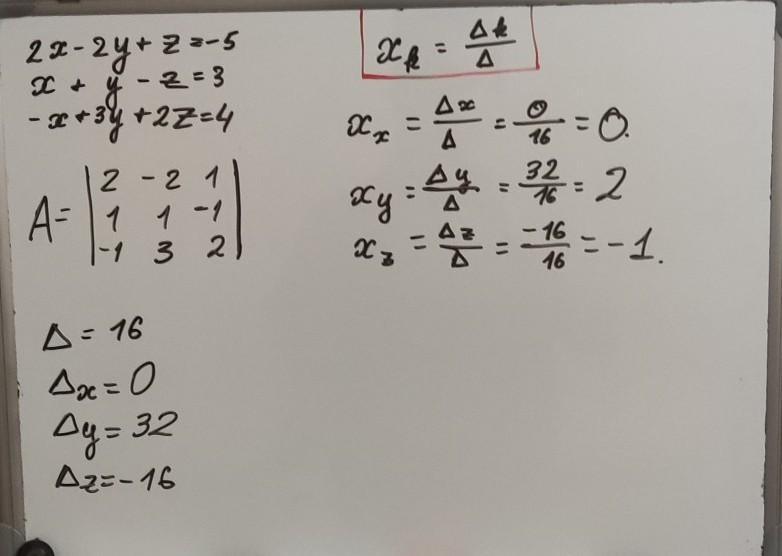 2x - 2y + z = -5
x + y - z = 3
-x + 3y + 2z = 4
A = | 2 -2 1 |
| 1 1 -1 |
| -1 3 2 |
Δ = 16
Δx = 0
Δy = 32
Δz = -16
x_k = Δk/Δ
x_x = Δx/Δ = 0/16 = 0.
x_y = Δy/Δ = 32/16 = 2
x_z = Δz/Δ = -16/16 = -1.